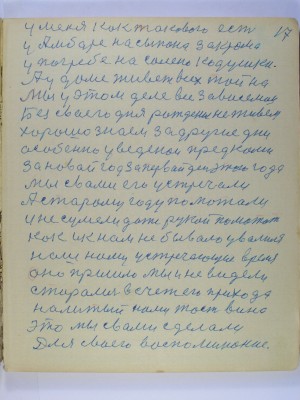 17
у меня как такового есть
у Амбаре насыпона закрома
у погребе на солено кадушки
А у доме живет всех той на
Мы у этом деле вси зависемая
Без своего дня рождения не живем
хорошо знаем за другие дни
особенно уведеной предками
за новай год за первай ден этого года
мы свами его устречали
А старому году помохали
у не сумели даже рукой помохат
как ик нам не бывало
нами кому устречающие время
оно пришло мы и не видели
старались в счет его прихода
налитый нами тост вина
Это мы свами сделали
Для своего воспоминание.